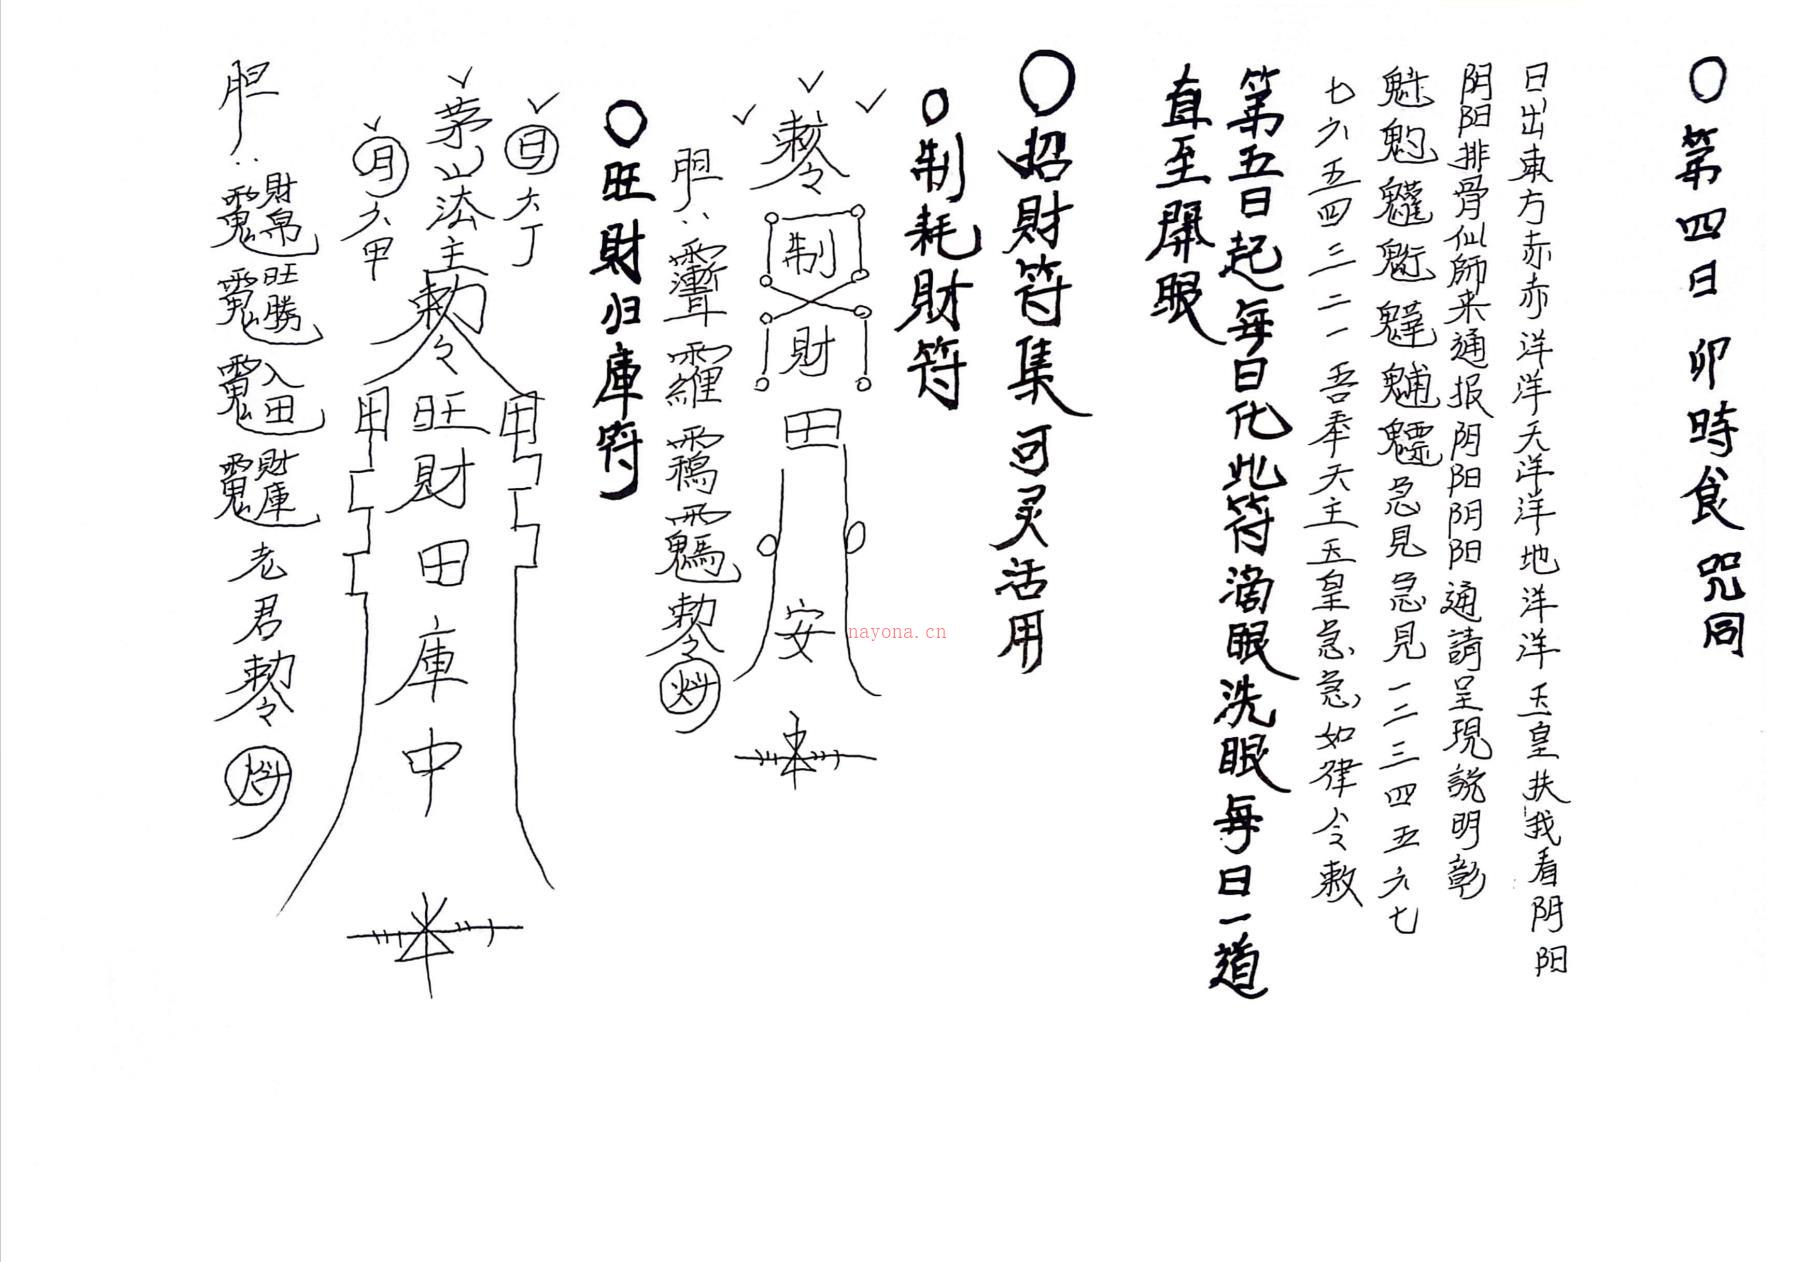 ○第四日卯時食咒同
日出東方赤赤洋洋天洋洋地洋洋玉皇扶我看阴阳
阴阳排骨仙師来通报阴阳阴阳通請呈現說明彰
急見急見一二三四五六七
七六五四三二一吾奉天主玉皇急急如律令敕
第五日起每日化此符滴眼洗眼每日一道
直至開眼
○招財符集可灵活用
○制耗財符
敕令
制
財
田
安
胆
敕令
○旺財归庫符
日 六丁
茅山法主敕令
月 六甲
旺財田庫中
胆
財帛 旺勝 入田 財庫 老君敕令
nayona.cn